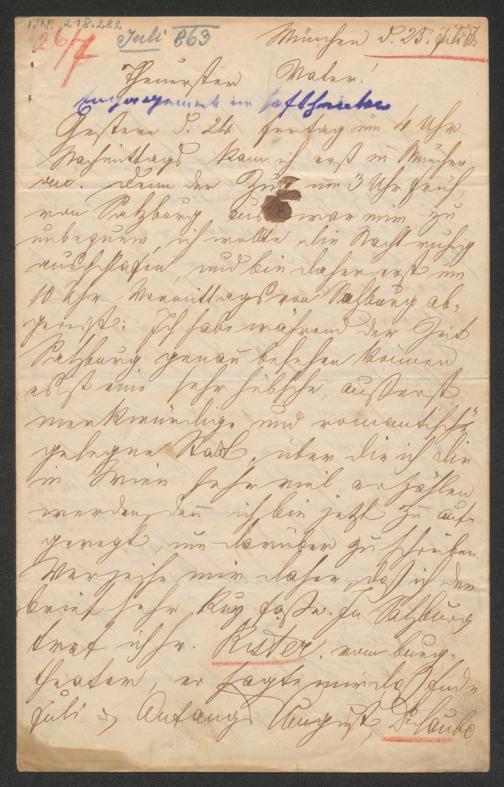 I.N. 218.282
26/7 Juli 863
München d. 25. Juli
Theuerster Vater!
Gestern d. 24 freitag um 4 Uhr
Nachmittags kam ich erst in München
an. Denn der Zug um 3 Uhr früh,
von Salzburg aus war mir zu
unbequem, ich wollte die Nacht ruhig
ausschlafen, und bin daher erst um
10 Uhr Vormittags von Salzburg ab-
gereist: Ich habe während der Zeit
Salzburg genau besehen können
es ist eine sehr hübsche, äußerst
merkwürdige und romantisch
gelegne Stadt, über die ich dir
in Wien sehr viel erzählen
werde, denn ich bin jetzt zu auf-
geregt, um darüber zu schreiben.
Verzeihe mir daher, daß ich den
brief sehr kurz fasse. In Salzburg
traf ich H. vom burg-
theater, er sagte mir daß Ende
Juli u Anfang August, Dr Laube